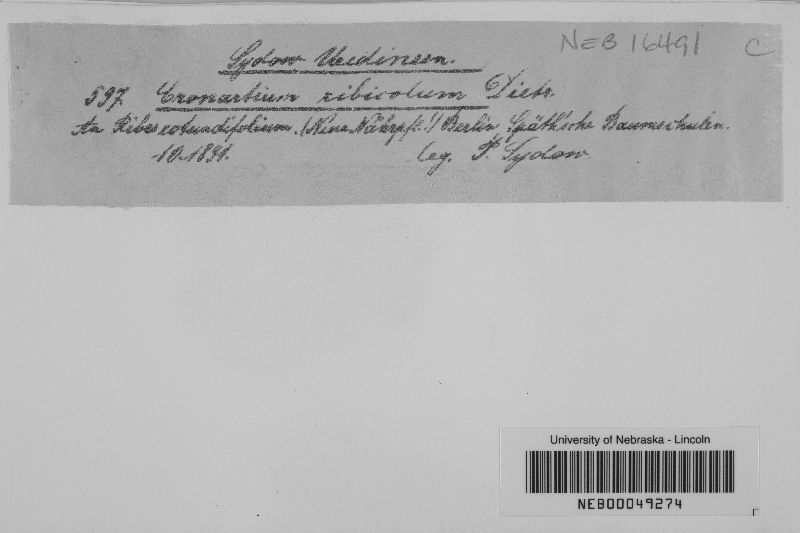 NEB 16491 C
Sydow Uredineen.
597. Cronartium ribicolum Dietr.
An Ribes rotundifolium. (Neue Nährpfl.!) Berlin Späth'sche Baumschulen.
10.1891.
leg. P. Sydow
University of Nebraska - Lincoln
NEB00049274